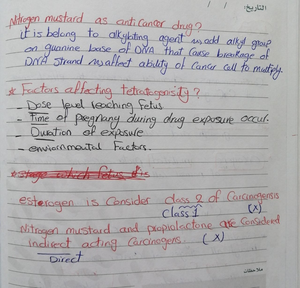 التاريخ: / /
Nitrogen mustard as anticancer drug?
it is belong to alkylating agent add alkyl group
on guanine base of DNA that cause breakage of
DNA strand affect ability of Cancer cell to multiply.
* Factors affecting tetratogensity?
- Dose level reaching Fetus
- Time of pregnancy during drug exposure occur.
- Duration of exposure
- enviornmental Factors.
* stage which fetus
esterogen is Consider class 2 of Carcinogensis
Class 1 (X)
Nitrogen mustard and propiolactone are Considered
indirect acting Carcinogens. (X)
Direct
ملاحظات